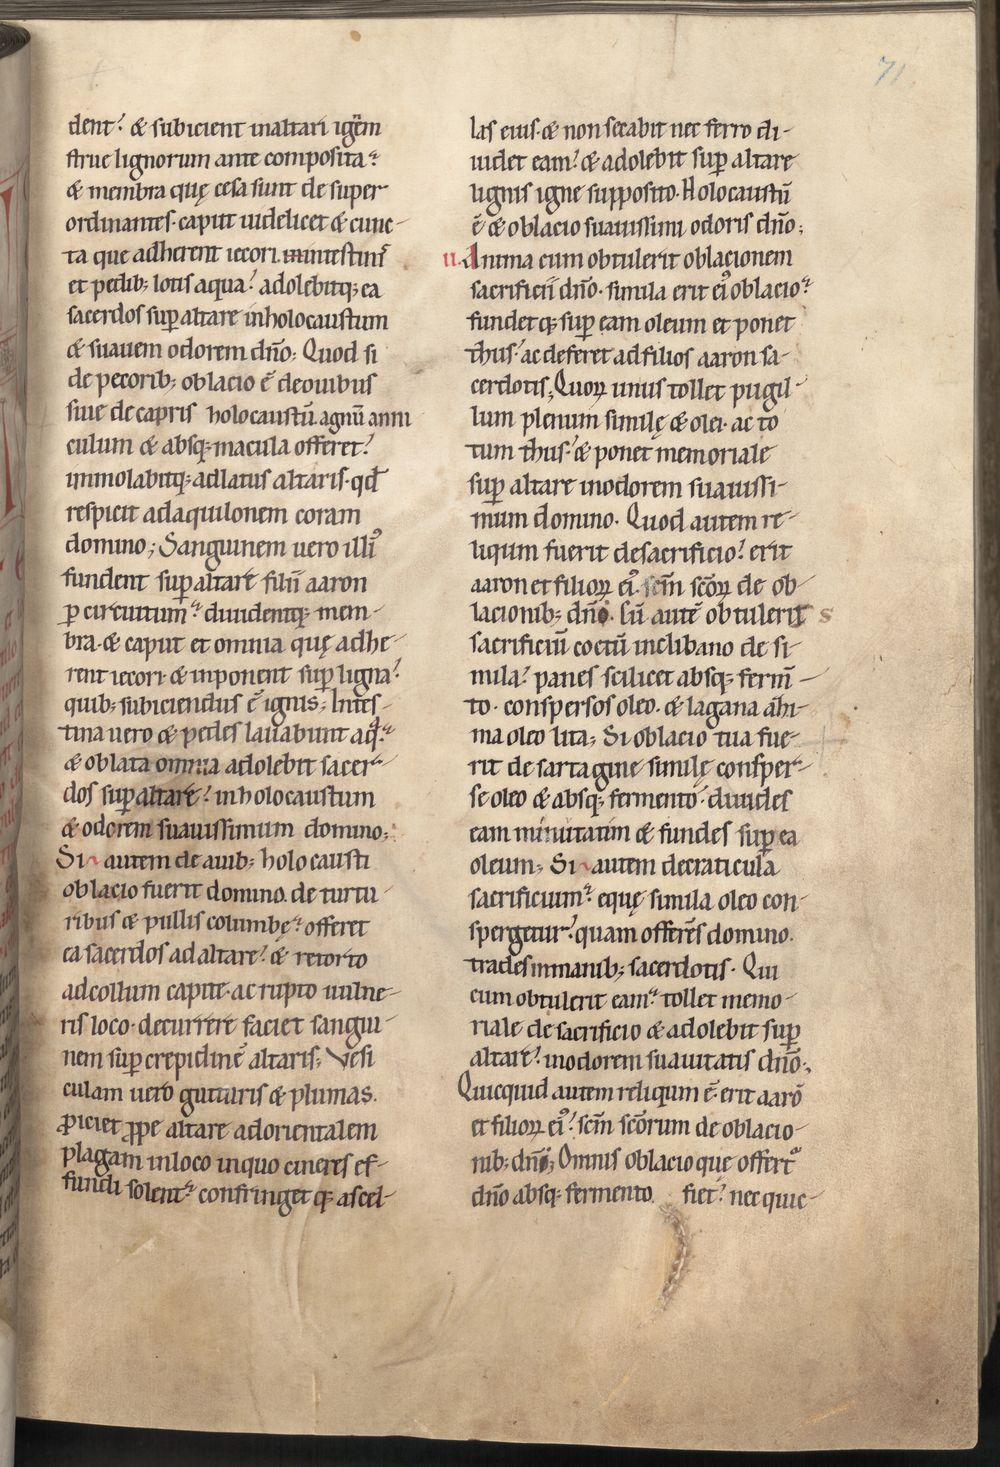 71
dent? & subicient inaltari igē̄m
strue lignorum ante composita:
& membra quę cesa sunt de super
ordinantes. caput uidelicet & cunc-
ta que adherent iecori. inintestinis
et pedib; lotis aqua? adolebitq; ea
sacerdos sup altare inholocaustum
& suauem odorem dn̄o; Quod si
de pecorib; oblacio ē deouibus
siue de capris holocaustū. agnū anni
culum & absq; macula offeret?
immolabitq; adlatus altaris. qđ
respicit adaquilonem coram
domino; Sanguinem uero illiꝰ
fundent sup altare filii aaron
ꝑ circuitum: diuidentq; mem-
bra. & caput et omnia quę adhe-
rent iecori. & inponent sup ligna?
quib; subiciendus ē ignis; Intes-
tina uero & pedes lauabunt aq̄.
& oblata omnia adolebit sacer-
dos sup altare? inholocaustum
& odorem suauissimum domino;
Si autem de auib; holocausti
oblacio fuerit domino. de turtu-
ribus & pullis columbę: offeret
ea sacerdos ad altare? & retorto
adcollum capite. ac rupto uulne-
ris loco. decurrere faciet sangui-
nem sup crepidinē altaris; Vesi
culam uero guturis & plumas.
ꝓiciet ꝓpe altare adorientalem
plagam inloco inquo cineres ef-
fundi solent: confringet q; ascel-
las eius. & non secabit nec ferro di-
uidet eam? & adolebit sup altare
lignis igne supposito. Holocaustū
ē & oblacio suauissimi odoris dn̄o;
ii. Anima cum obtulerit oblacionem
sacrificii dn̄o. simila erit eiꝰ oblacio:
fundet q; sup eam oleum et ponet
thus? ac deferet ad filios aaron sa-
cerdotis; Quoꝝ unus tollet pugil-
lum plenum similę & olei. ac to
tum thus? & ponet memoriale
sup altare inodorem suauissi-
mum domino. Quod autem re-
liqum fuerit desacrificio? erit
aaron et filioꝝ eiꝰ. sc̄m sc̄oꝝ de ob-
lacionib; dn̄o. Cū autē obtulerit s
sacrificiū coctū inclibano de si-
mila? panes scilicet absq; ferm̄-
to. conspersos oleo. & lagana aʒi-
ma oleo lita; Si oblacio tua fue-
rit de sartagine similę consper-
se oleo & absq; fermento? diuides
eam minutatim & fundes sup ea
oleum; Si autem decraticula
sacrificium: equę simila oleo con-
spergetur? quam offerēs domino.
trades inmanib; sacerdotis. Qui
cum obtulerit eam: tollet memo-
riale de sacrificio & adolebit sup
altare? inodorem suauitatis dn̄o;
Quicquid autem reliqum ē. erit aarō
et filioꝝ eiꝰ? sc̄m sc̄orum de oblacio-
nib; dn̄i; Omnis oblacio que offert᷑
dn̄o absq; fermento fiet? nec quic-